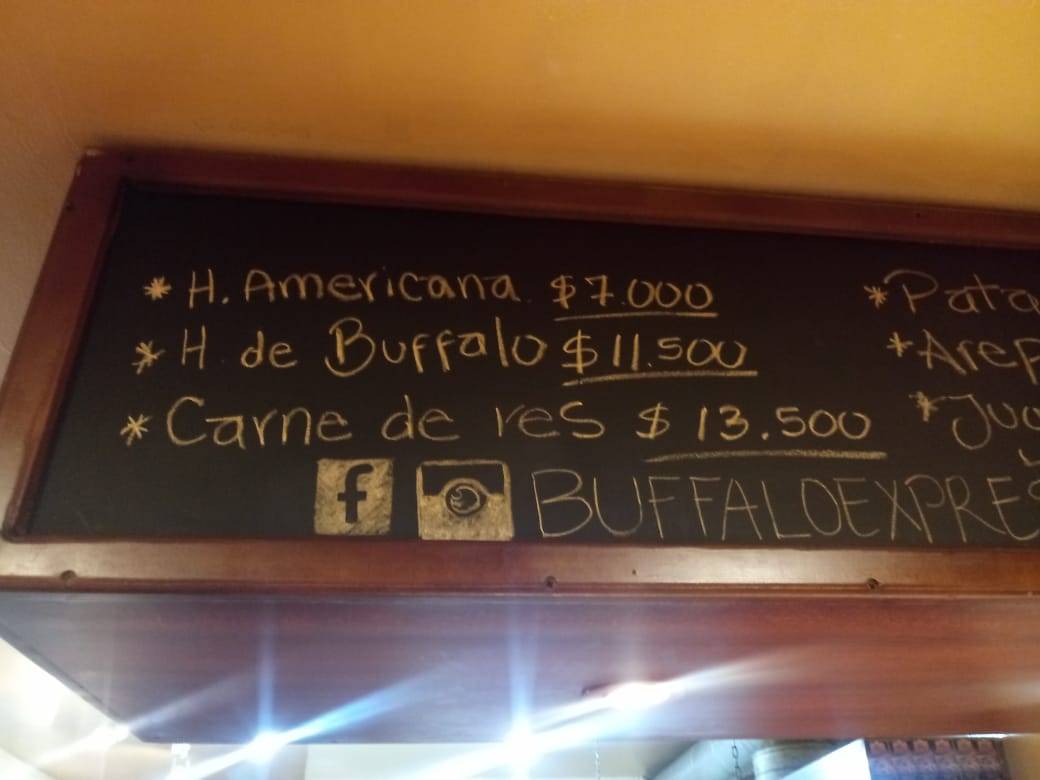 * H. Americana $7.000
* H. de Buffalo $11.500
* Carne de res $13.500
f BUFFALOEXPRES
* Pata
* Arep
* Jug